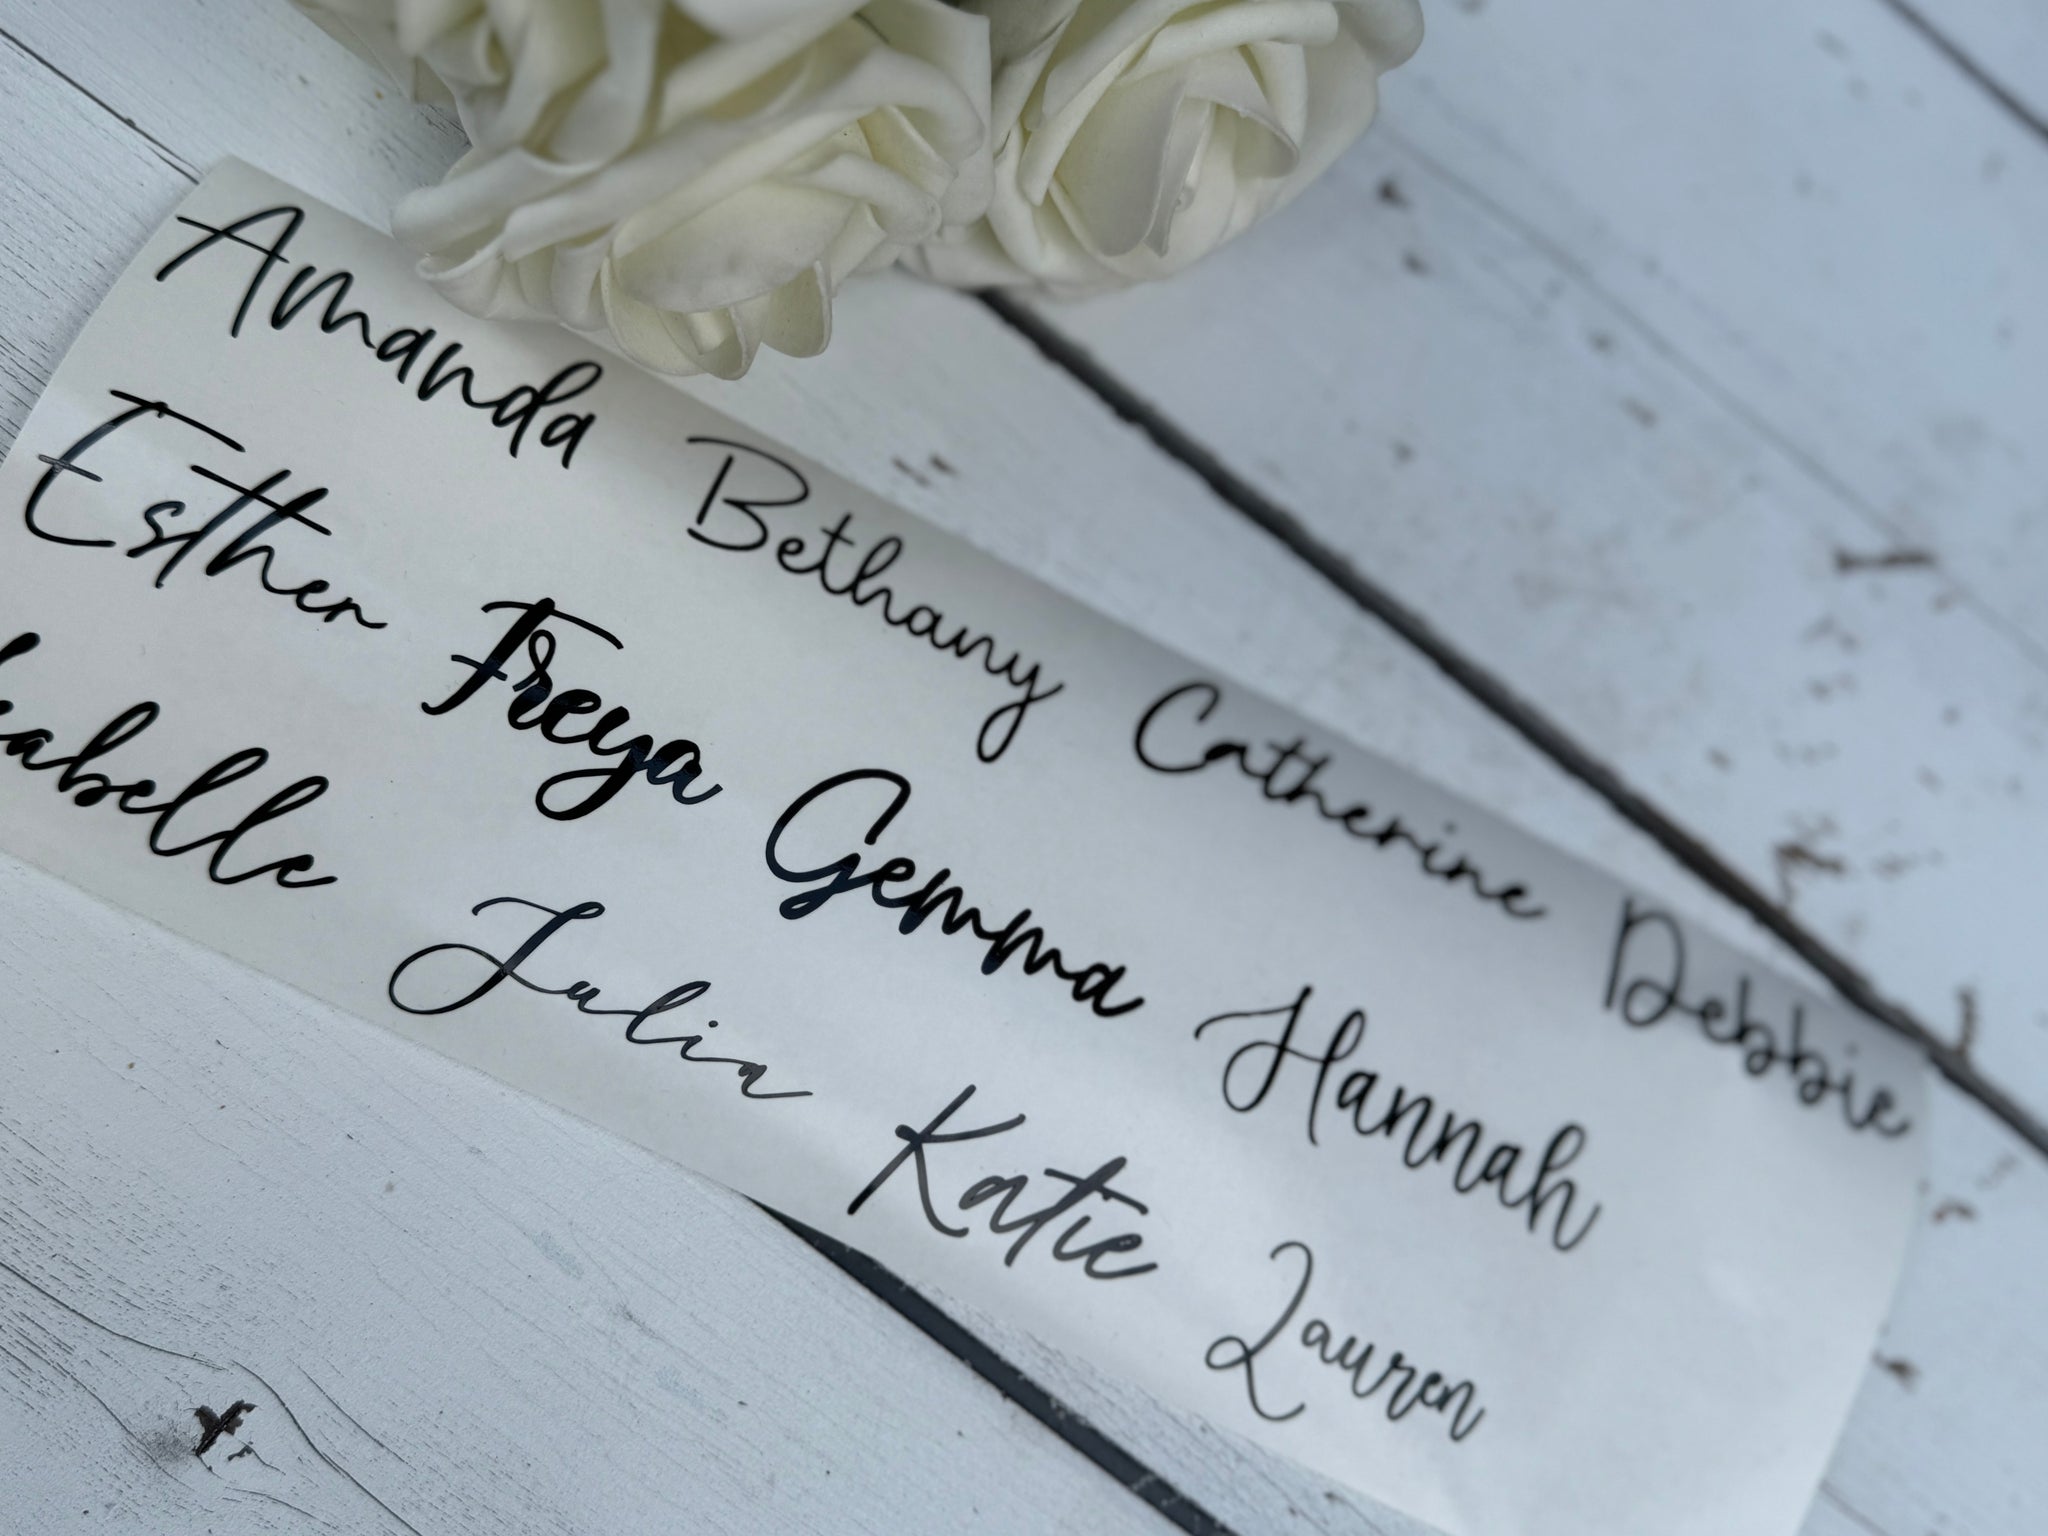 Amanda Bethany Catherine Debbie
Esther Freya Gemma Hannah
Isabelle Julia Katie Lauren